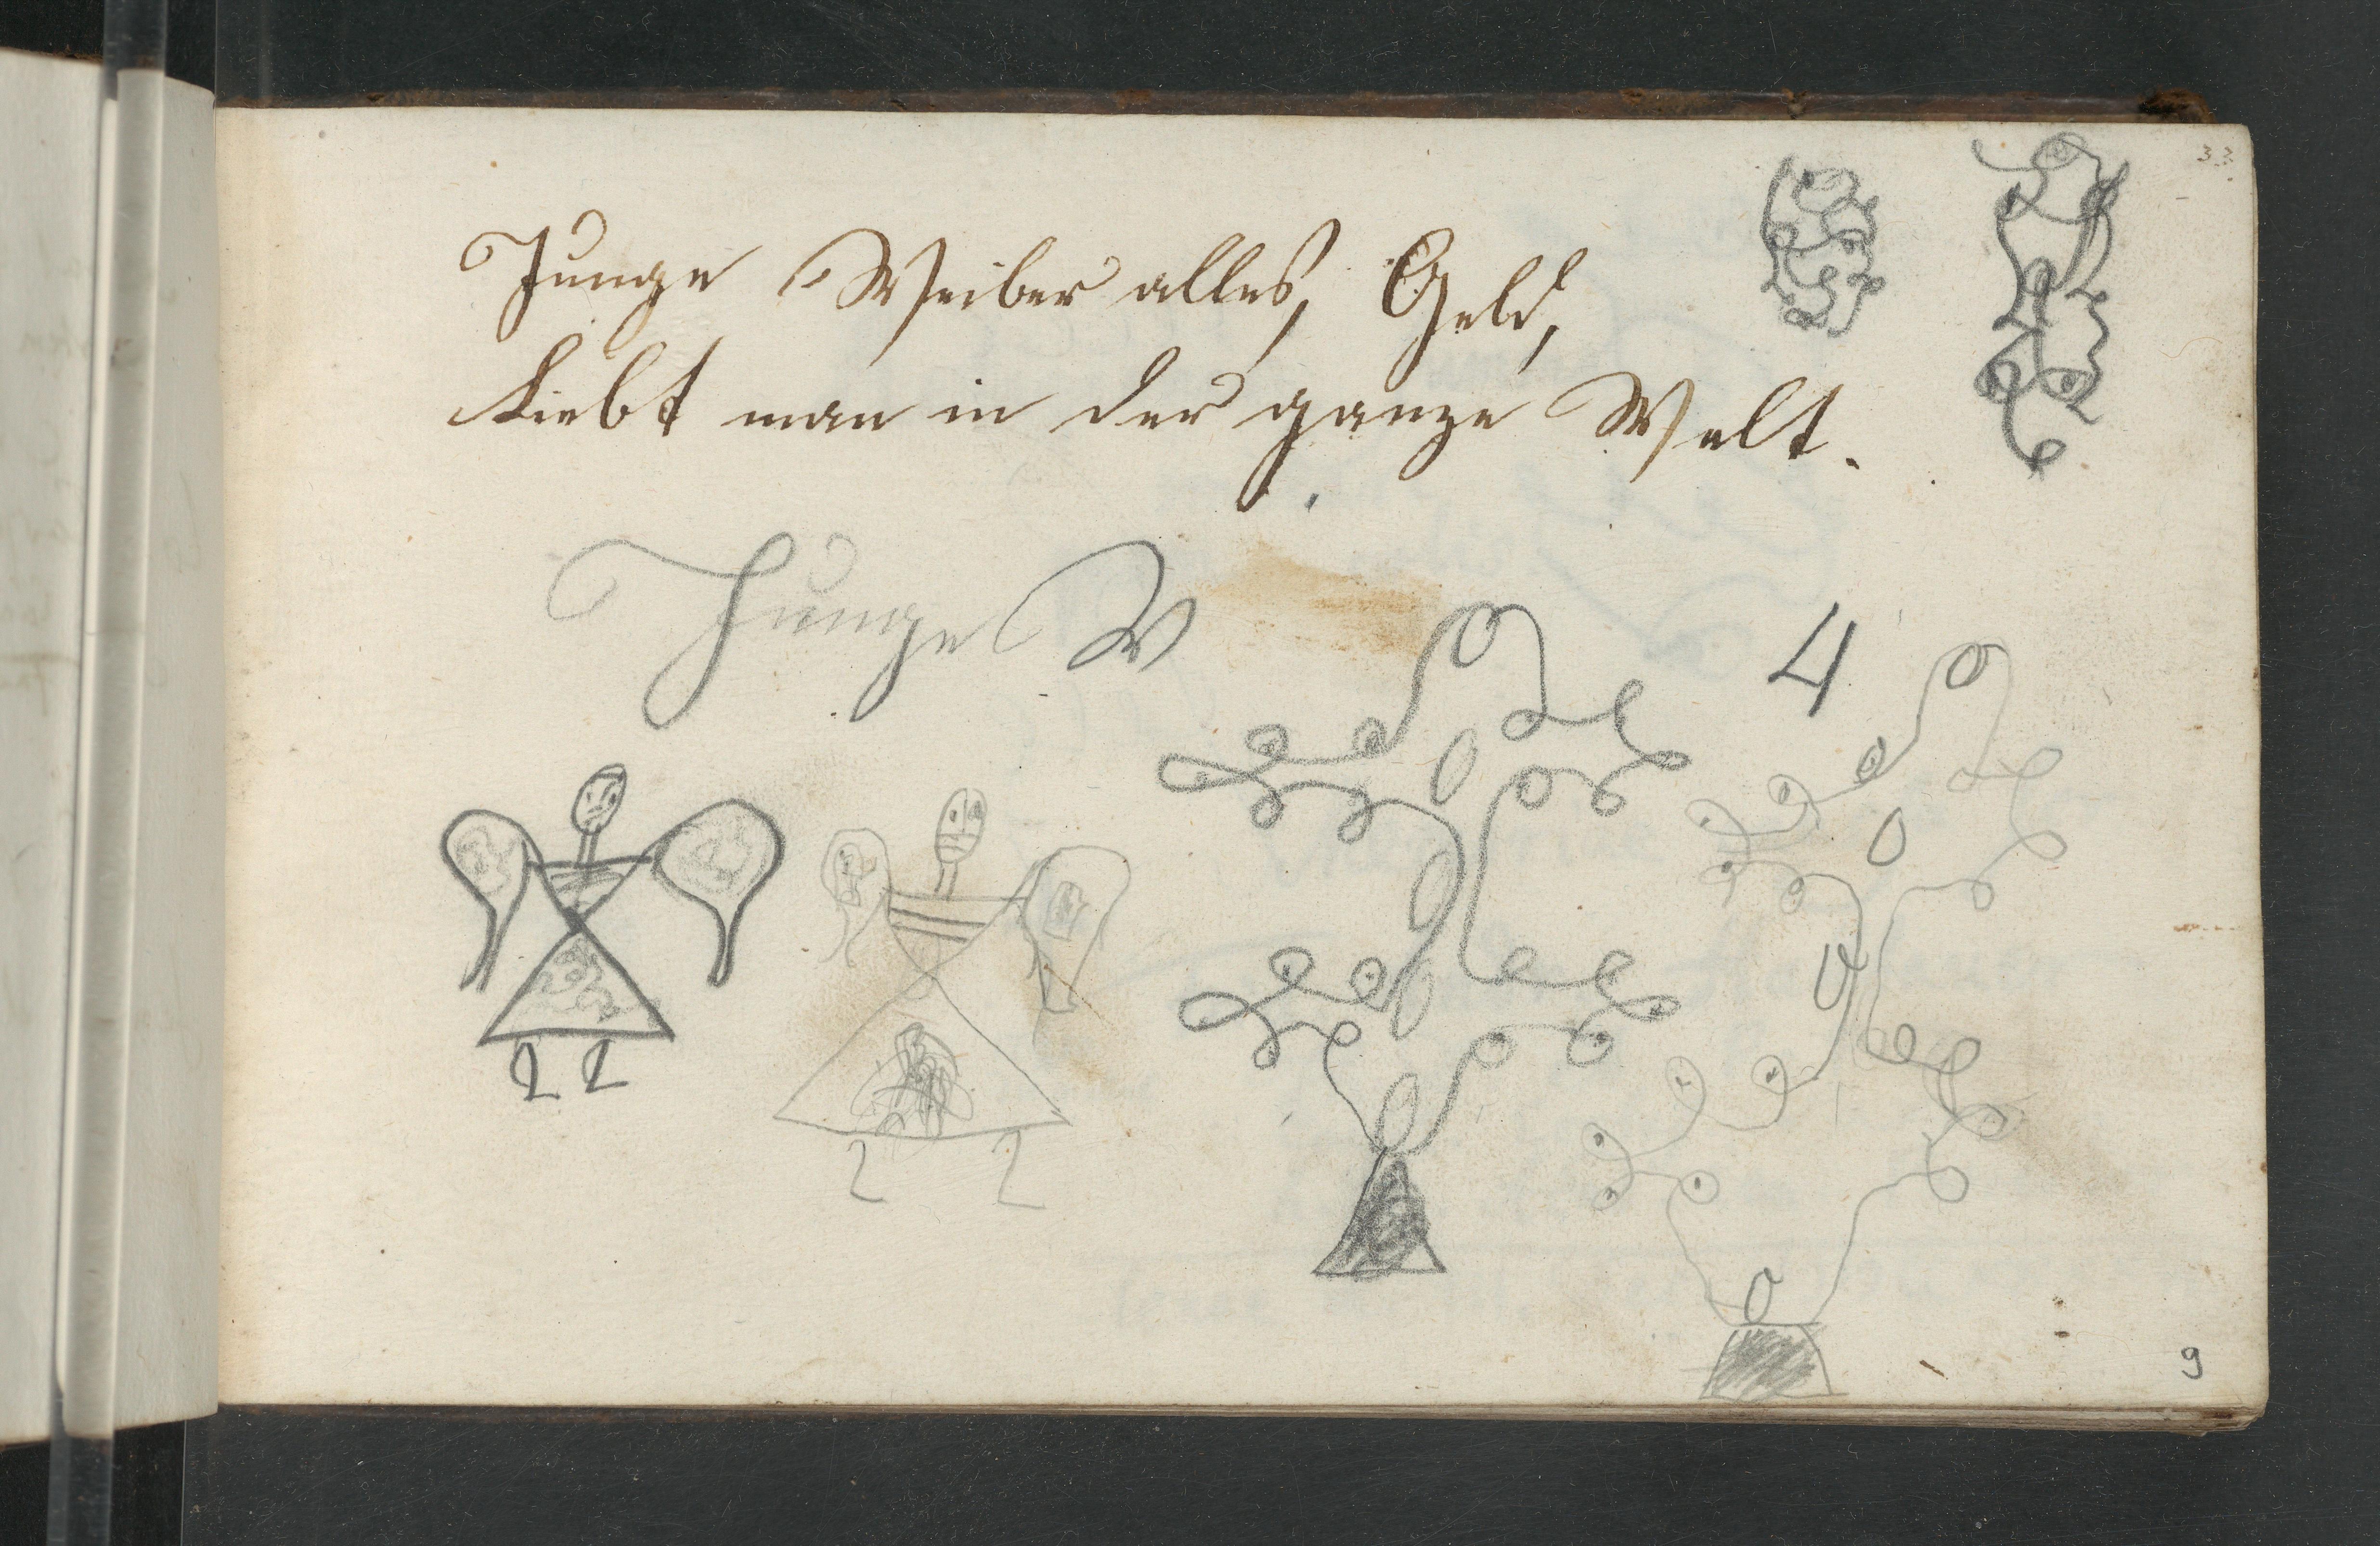 33.
Junge Weiber altes, Geld,
Liebt man in der ganze Welt.
Junge W
4
9